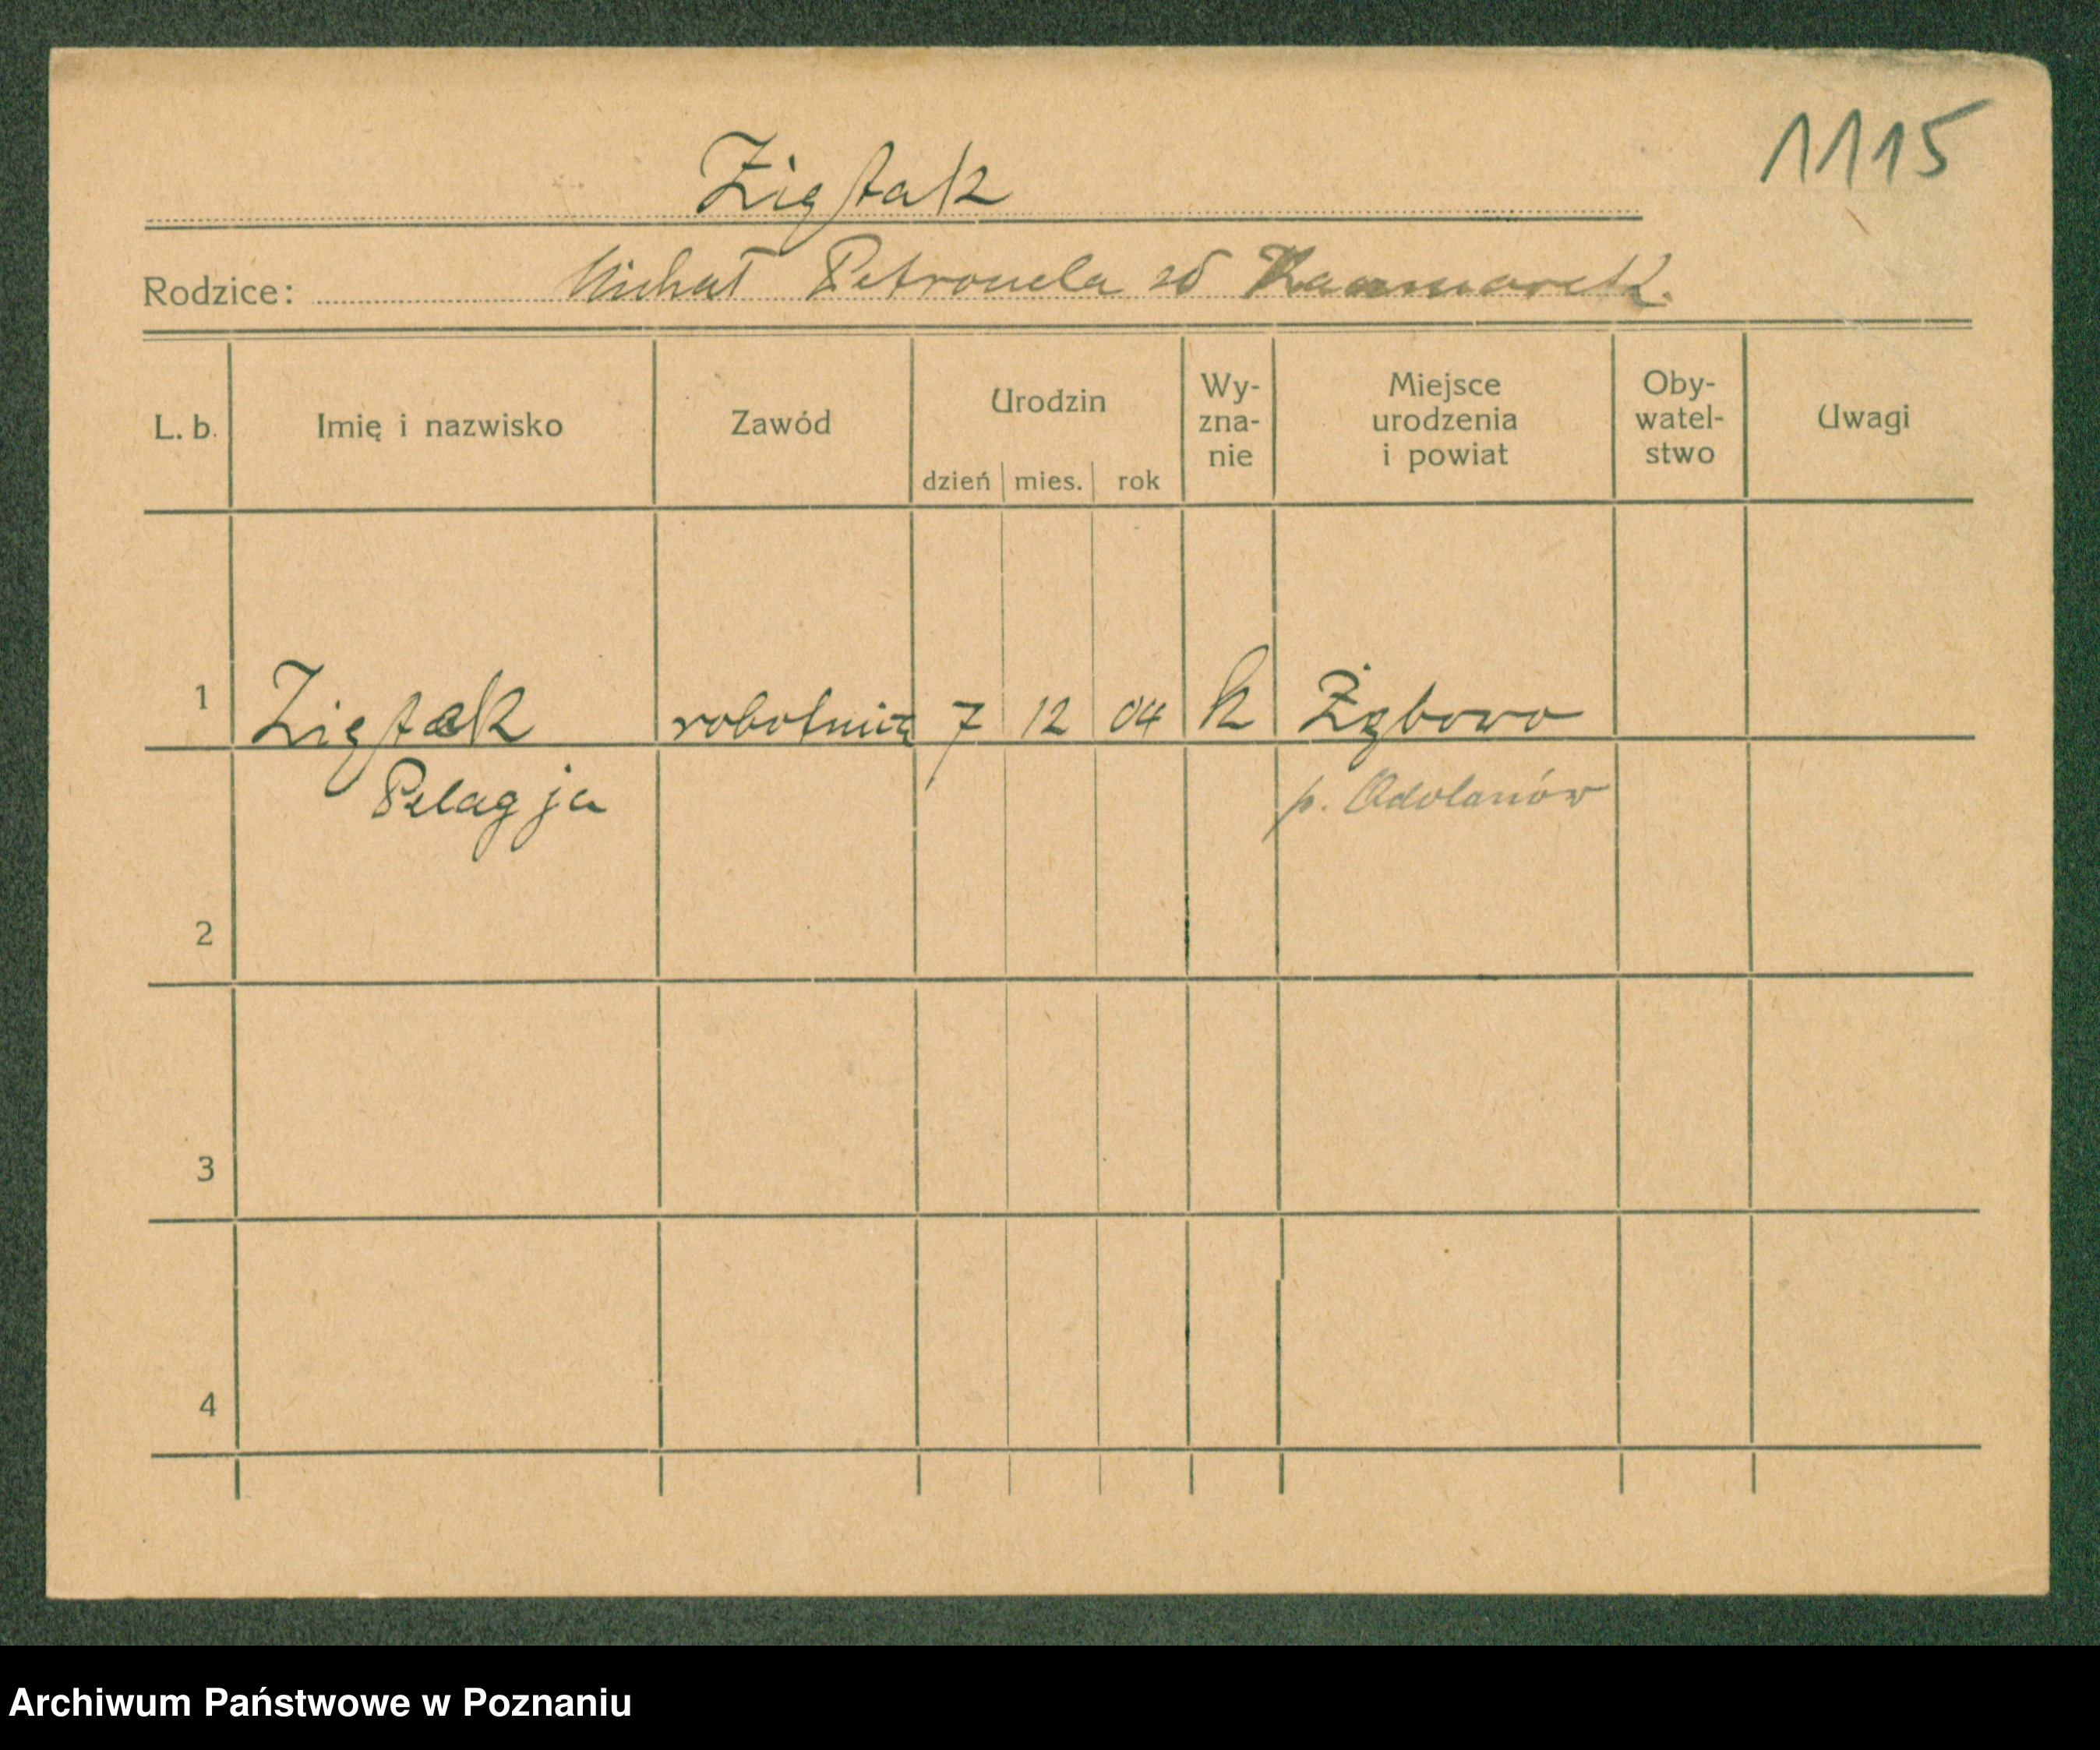 1115
Ziętak
Rodzice: Michał Petronela zd Kaczmarek.
L. b. Imię i nazwisko Zawód Urodzin dzień mies. rok Wy-zna-nie Miejsce urodzenia i powiat Oby-watel-stwo Uwagi
1 Ziętak robotnica 7 12 04 k
Pelagja p. Odolanów
2
3
4
Archiwum Państwowe w Poznaniu